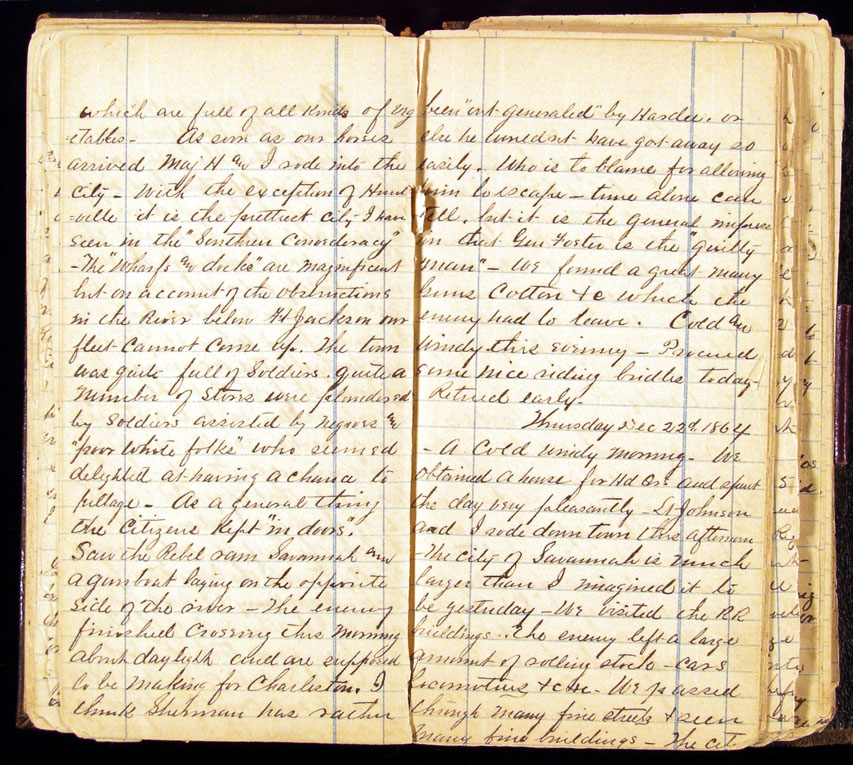 which are full of all kinds of veg
etables - As soon as our horses
arrived Maj H and I rode into the
City - With the exception of Hunts
ville it is the prettiest city I have
seen in the "Southern Conordoracy"
- The "Wharfs and docks" are magnificent
but on account of the obstructions
in the River below Ft Jackson our
fleet cannot come up. The town
was quite full of Soldiers. quite a
number of stores were plundered
by soldiers assisted by negroes and
"poor white folks" who seemed
delighted at having a chance to
pillage - As a general thing
the Citizens kept "in doors".
Saw the Rebel ram Savannah and
a gunboat laying on the opposite
side of the river - The enemy
finished crossing this morning
about daylight and are supposed
to be making for Charleston. I
think Sherman has rather
been "out generaled" by Hardee. or
else he wouldnt have got away so
easily. Who is to blame for allowing
him to escape - time alone can
tell. but it is the general impress
ion that Gen Foster is the "guilty
man" - We found a great many
guns Cotton &c which the
enemy had to leave. Cold and
windy this evening - Procured
some nice riding bridles today -
Retired early -
Thursday Dec 22d. 1864
- A Cold windy morning - We
obtained a house for Hd Qrs and spent
the day very pleasantly - Lt Johnson
and I rode down town this afternoon
- The city of Savannah is much
larger than I imagined it to
be yesterday - We visited the RR
buildings. The enemy left a large
amount of rolling stock - cars
locomotives &c &c - We passed
through many fine streets & seen
many fine buildings - The cit